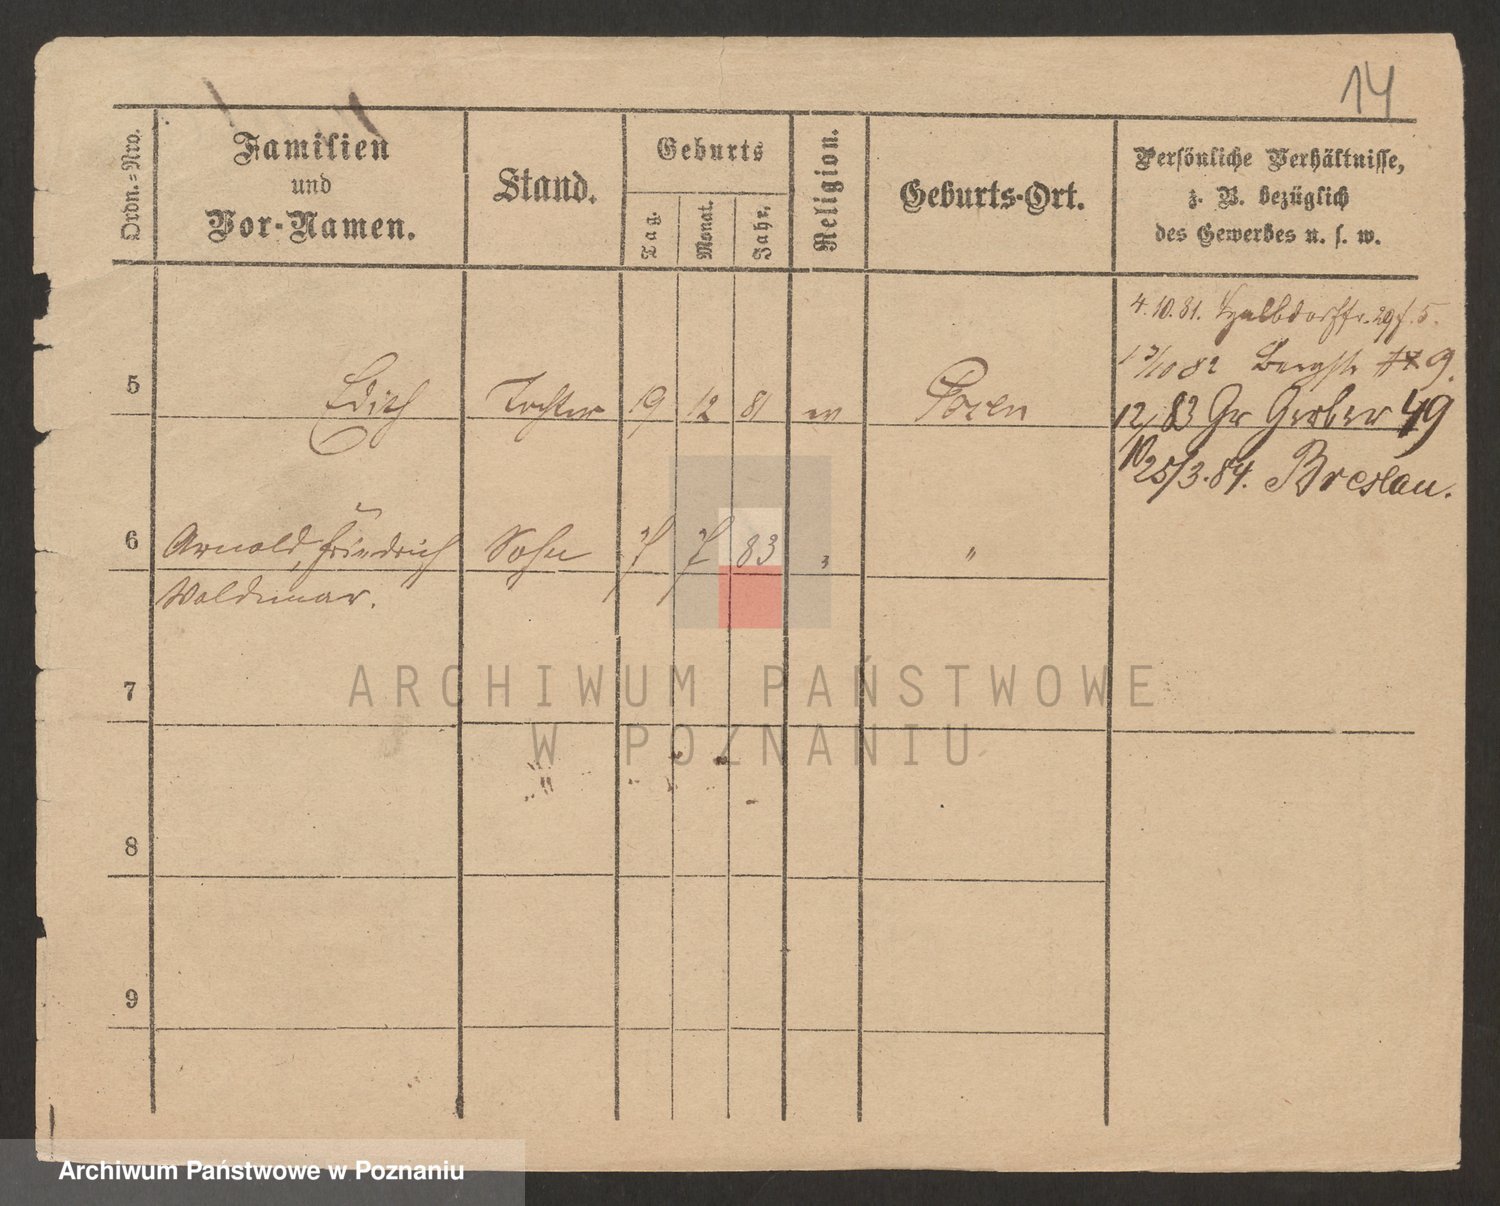 14
Ordn.-Nro.
Familien
und
Vor-Namen.
Stand.
Geburts
Tag.
Monat.
Jahr.
Religion.
Geburts-Ort.
Persönliche Verhältnisse,
z. B. bezüglich
des Gewerbes u. s. w.
4.10.81. 29 5.
82 Bergstr. 9.
5 Edith Tochter 19 12 81 ev Posen
12/10 83 Gr Gerber 49
25/3.84. Breslau.
6 Arnold, Friedrich Sohn 7 7 83 " "
Woldemar.
7
8
9
ARCHIWUM PAŃSTWOWE
W POZNANIU
Archiwum Państwowe w Poznaniu